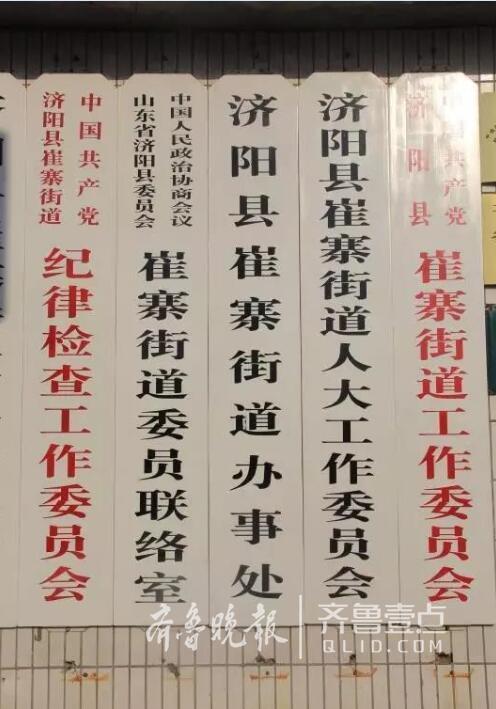 中国共产党
济阳县
崔寨街道工作委员会
济阳县崔寨街道人大工作委员会
济阳县崔寨街道办事处
中国人民政治协商会议
山东省济阳县委员会
崔寨街道委员联络室
中国共产党
济阳县崔寨街道
纪律检查工作委员会
齐鲁晚报
齐鲁壹点
QLID.COM